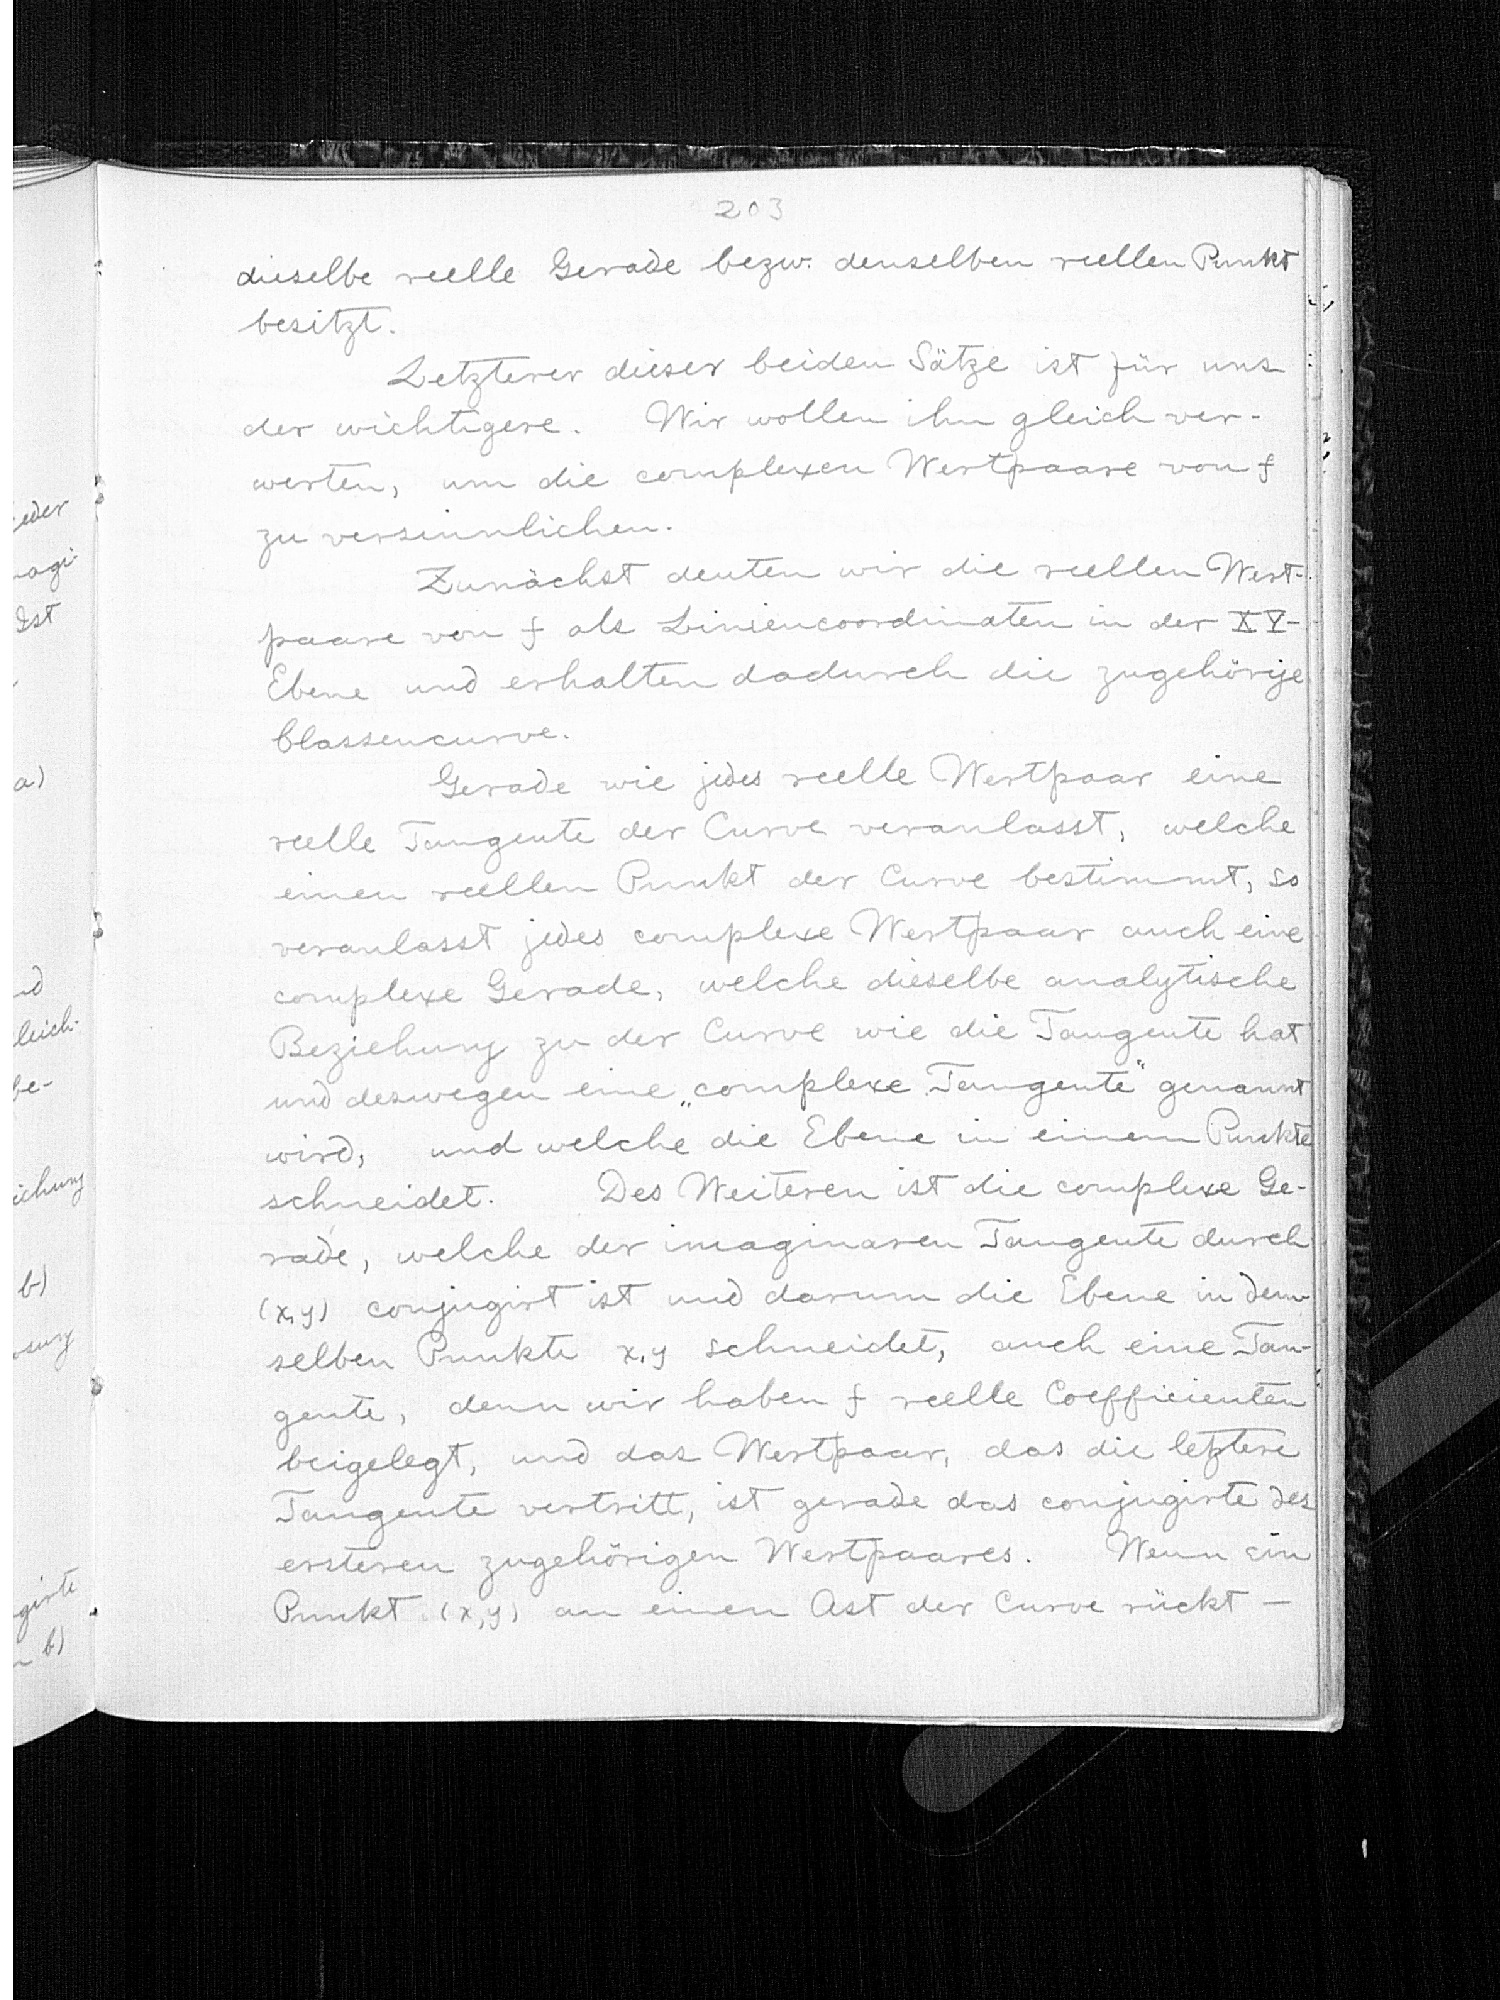 203
dieselbe reelle Gerade bezw. denselben reellen Punkt
besitzt.
Letzterer dieser beiden Sätze ist für uns
der wichtigere. Wir wollen ihn gleich ver-
werten, um die complexen Wertpaare von f
zu versinnlichen.
Zunächst deuten wir die reellen Wert-
paare von f als Liniencoordinaten in der XY-
Ebene und erhalten dadurch die zugehörige
Classencurve.
Gerade wie jedes reelle Wertpaar eine
reelle Tangente der Curve veranlasst, welche
einen reellen Punkt der Curve bestimmt, so
veranlasst jedes complexe Wertpaar auch eine
complexe Gerade, welche dieselbe analytische
Beziehung zu der Curve wie die Tangente hat
und deswegen eine „complexe Tangente“ genannt
wird, und welche die Ebene in einem Punkte
schneidet. Des Weiteren ist die complexe Ge-
rade, welche der imaginaren Tangente durch
(x,y) conjugirt ist und darum die Ebene in dem-
selben Punkte x,y schneidet, auch eine Tan-
gente, denn wir haben f reelle Coefficienten
beigelegt, und das Wertpaar, das die letztere
Tangente vertritt, ist gerade das conjugirte des
ersteren zugehörigen Wertpaares. Wenn ein
Punkt (x,y) an einen Ast der Curve rückt —
eder
nagi-
Ist
a)
leich-
be-
b)
b)